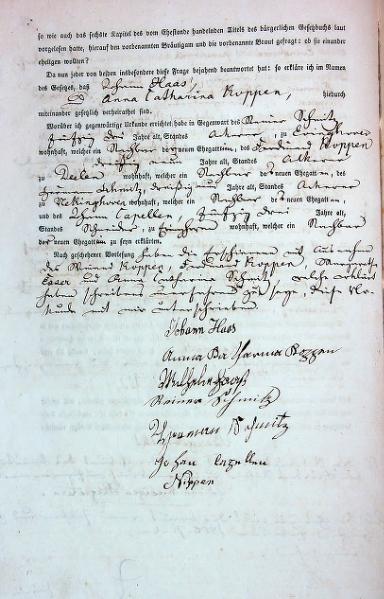 so wie auch das sechste Kapitel des vom Ehestande handelnden Titels des bürgerlichen Gesetzbuchs laut
vorgelesen hatte, hierauf den vorbenannten Bräutigam und die vorbenannte Braut gefragt: ob sie einander
ehelichen wollten?
Da nun jeder von beiden insbesondere diese Frage bejahend beantwortet hat: so erkläre ich im Namen
des Gesetzes, daß Johann Haas,
Anna Catharina Koppen, hiedurch
miteinander gesetzlich verheirathet sind.
Worüber ich gegenwärtige Urkunde errichtet habe in Gegenwart des Reiner Schmitz
fünfzig drei Jahre alt, Standes Ackerer, zu
wohnhaft, welcher ein Nachbar des neuen Ehegatten, des Ferdinand Koppen
dreißig neun Jahre alt, Standes Ackerer
zu wohnhaft, welcher ein Nachbar des neuen Ehegatten, des
Schmitz, dreißig Jahre alt, Standes Ackerer
zu wohnhaft, welcher ein Nachbar des neuen Ehegatten,
und des Johann Capellen, fünfzig drei Jahre alt,
Standes Schneider, zu wohnhaft, welcher ein Nachbar
des neuen Ehegatten zu seyn erklärten.
Nach geschehener Vorlesung haben die mit Ausnahme
des Koppen, Ferdinand Koppen,
und Anna Catharina Schmitz, welche erklärt
haben Schreibens zu seyn, diese
mit mir unterschrieben.
Johann Haas
Anna Catharina Koppen
Wilhelm Haas
Reiner Schmitz
Hermann Schmitz
Johan Capellen